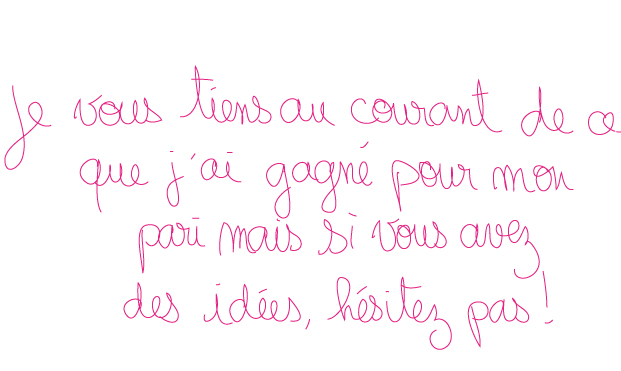 Je vous tiens au courant de ce
que j'ai gagné pour mon
pari mais si vous avez
des idées, hésitez pas!